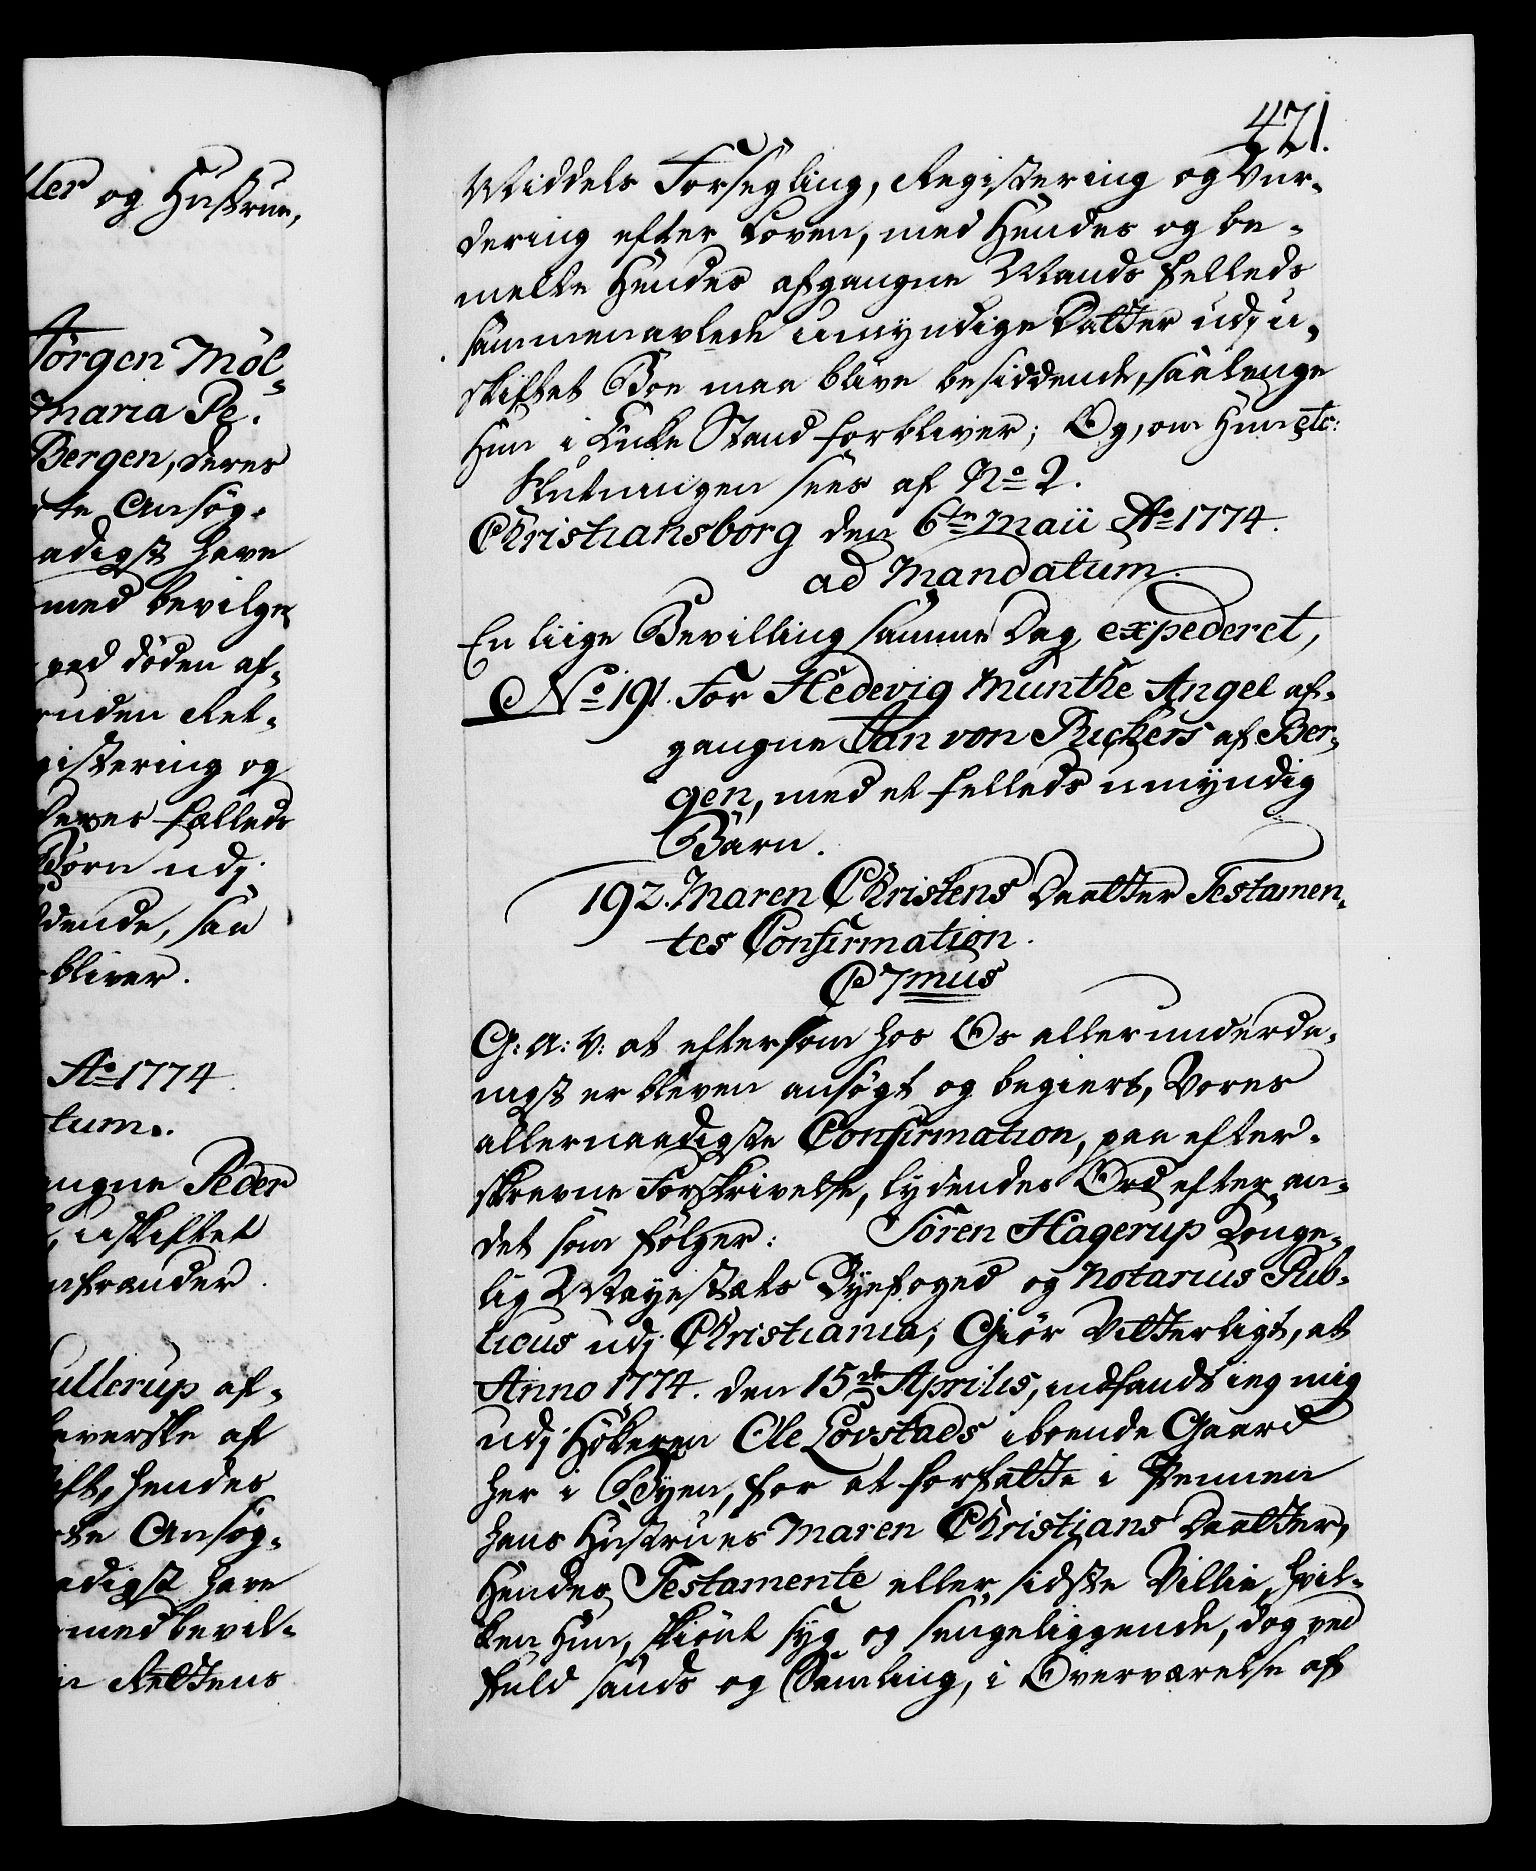 ller og Hustrue,
Jörgen Möl-
Maria Pe-
Bergen, deres
te Ansøg-
aadigst have
med bevilge
ved döden af-
nden Ret-
gistering og
deres fælleds
Börn udj
dende, saa
bliver.
Ao 1774
tum.
angne Peder
, uskiftet
nfrænder.
ullerup af-
leverske af
ift, hendes
te Ansøg-
adigst have
med bevil-
n Rettens
471.
Middels Forsegling, Registering og Vur-
dering efter Loven, med Hendes og be-
melte Hendes afgangne Mands felleds
sammenavlede umyndige Datter udj u-
skiftet Boe maa blive besiddende, saalenge
Hun i Enke Stand forbliver; Og, om Hun etc:
Slutningen sees af No 2.
Christiansborg den 6te Maii Ao 1774.
ad Mandatum.
En liige Bevilling samme Dag expederet,
No 191. For Hedevig Munthe Angel af-
gangne Jan von Ruckers af Ber-
gen, med et felleds umyndig
Barn.
192. Maren Christens Daatter Testamen-
tes Confirmation.
C 7mus
G: A: V: at eftersom hos Os allerunderda-
nigst er bleven ansøgt og begiert, Vores
allernaadigste Confirmation, paa efter-
skrevne Forskrivelse, lydendes Ord efter an-
det som følger: Sören Hagerup Konge-
lig Mayestæts Byefoged og Notarius Pub-
licus udj Christiania, Giör Vitterligt, at
Anno 1774. den 15de Aprilis, indfandt ieg mig
udj Hökeren Ole Lovstads iboende Gaard
her i Byen, for at forfatte i Pennen
hans Hustrues Maren Christians Daatter,
Hendes Testamente eller sidste Villie, hvil-
ken Hun, skiönt syg og sengeliggende, dog ved
fuld sands og Samling, i Overværelse af